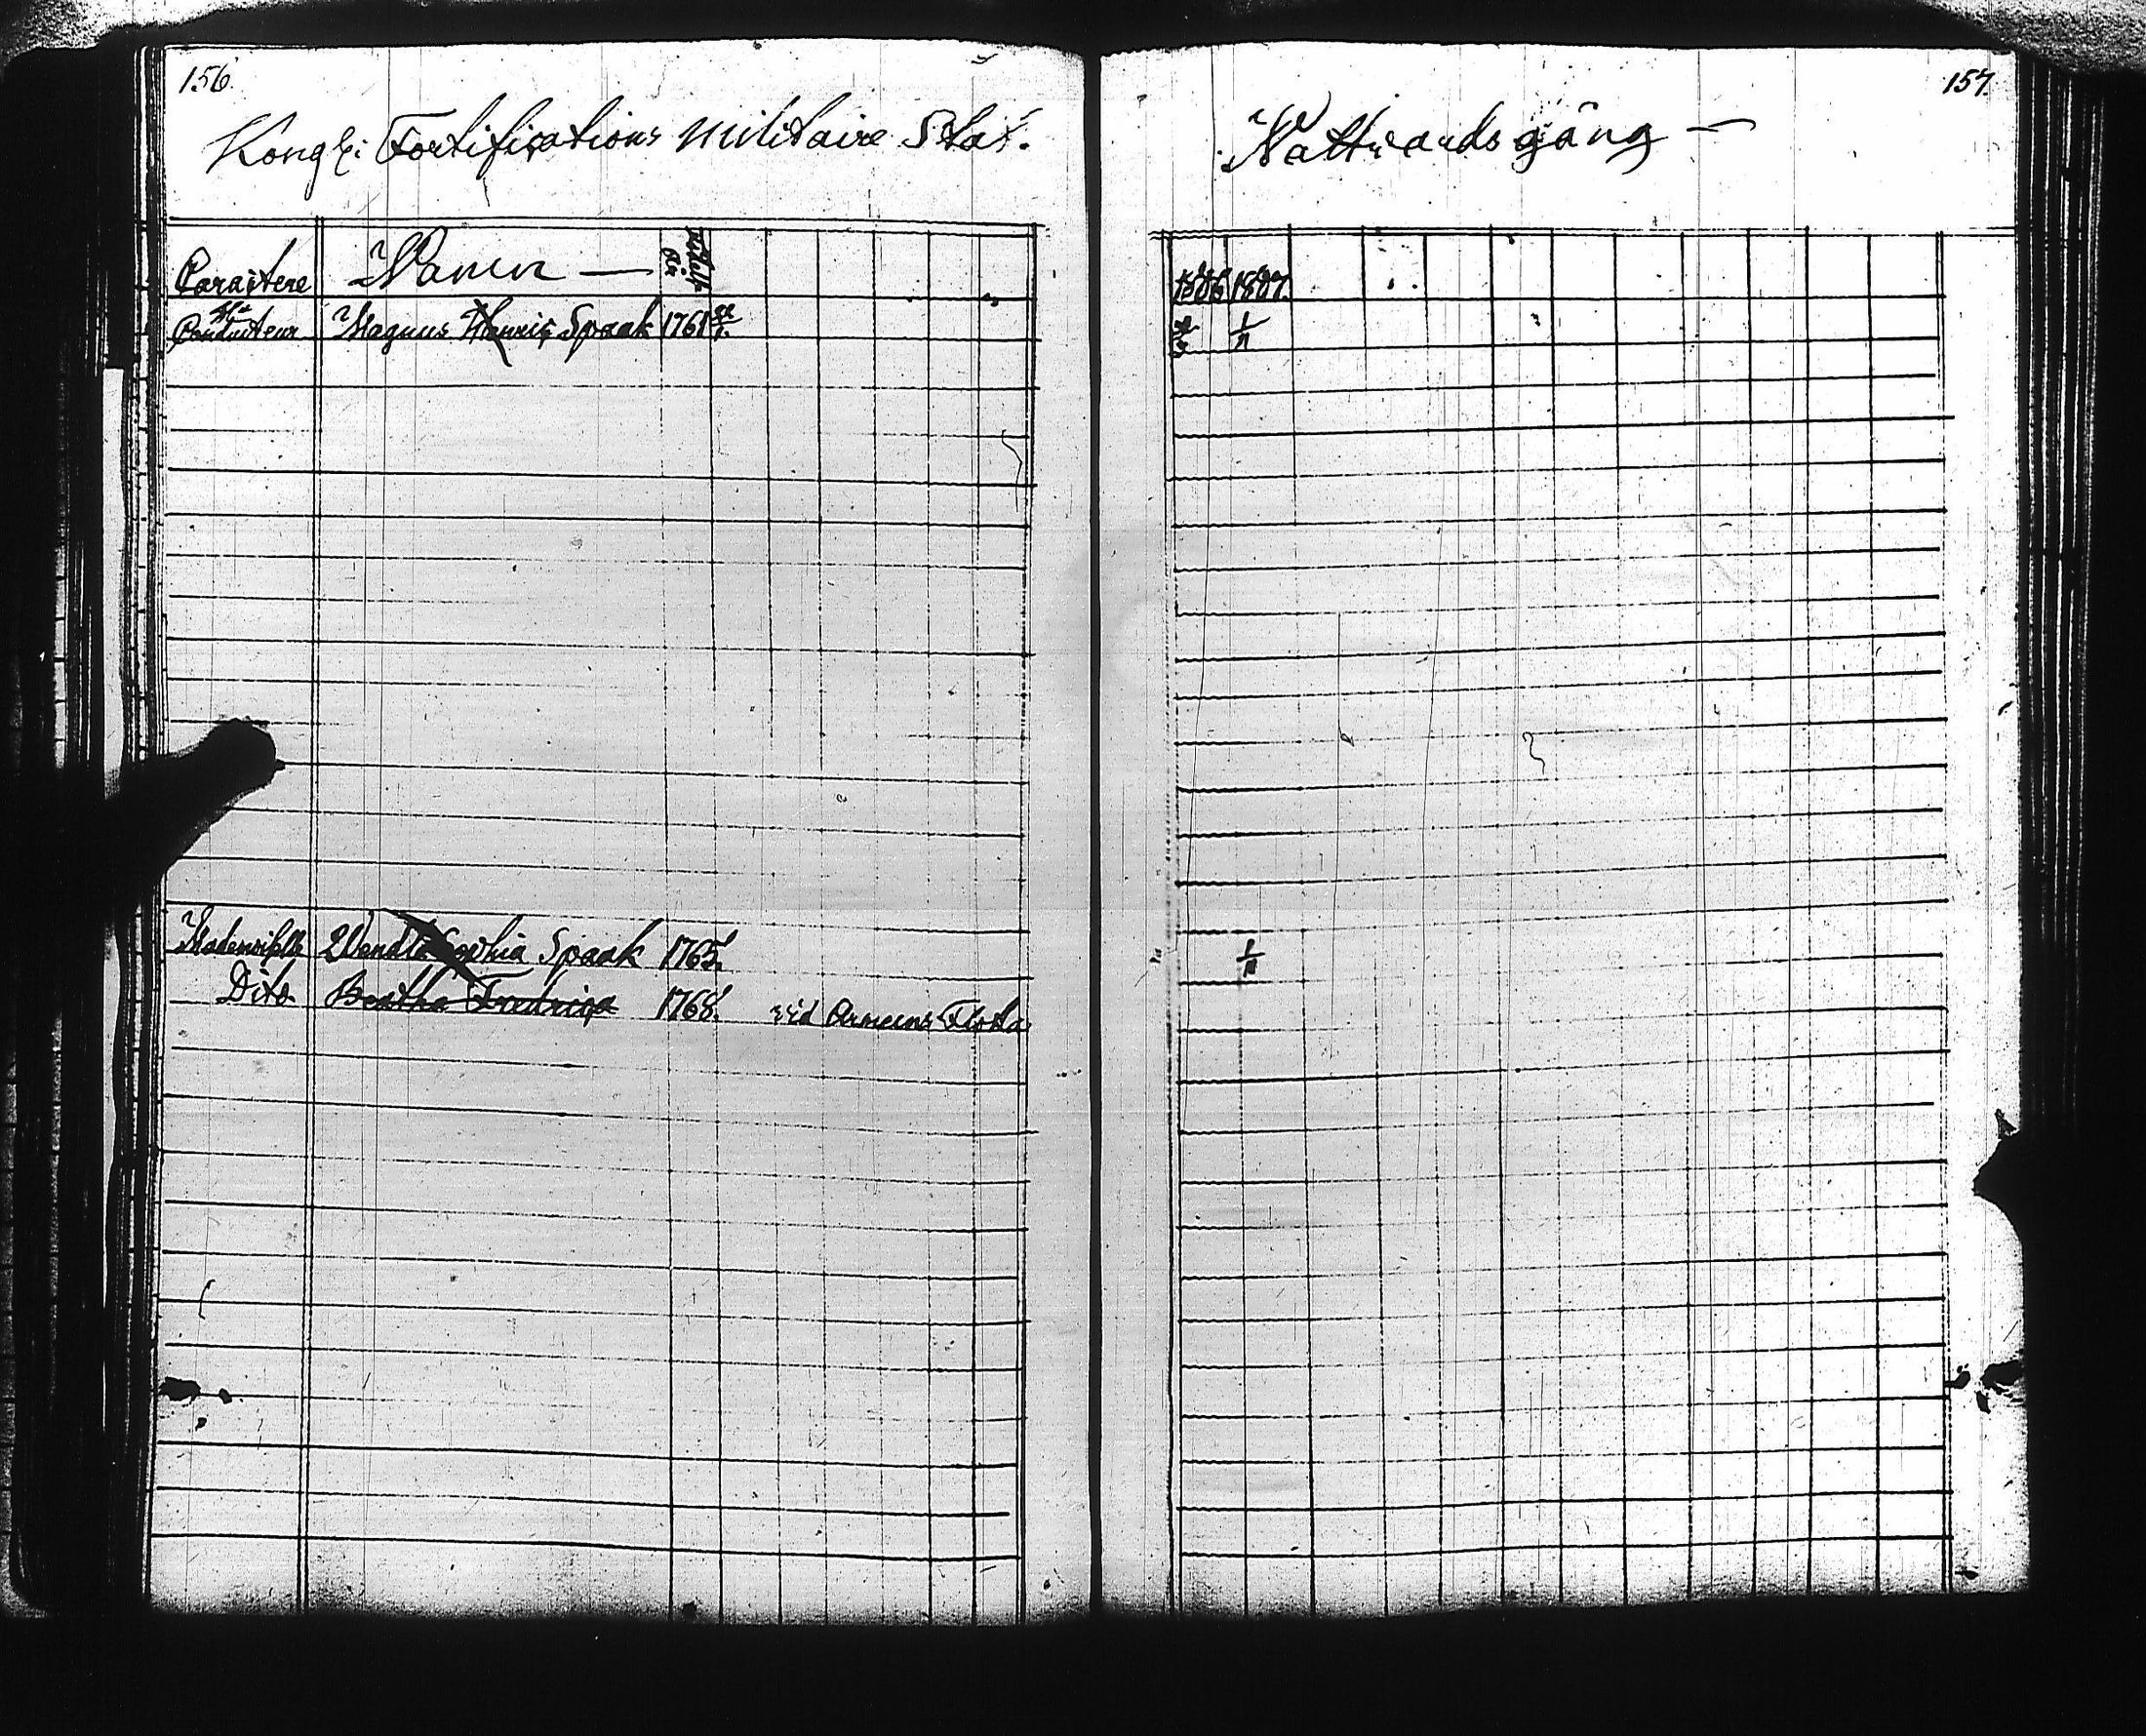 156.
Kongl: Fortifications Militaire Stat.
Caractere Namn —
Conducteur Magnus Henric Spaak 1761
Mademoiselle Wendla Sophia Spaak 1765.
Dito Beatha Fredrica 1768. vid Armeens Flotta
157
Nattvardsgång —
1806 1807.
1
1